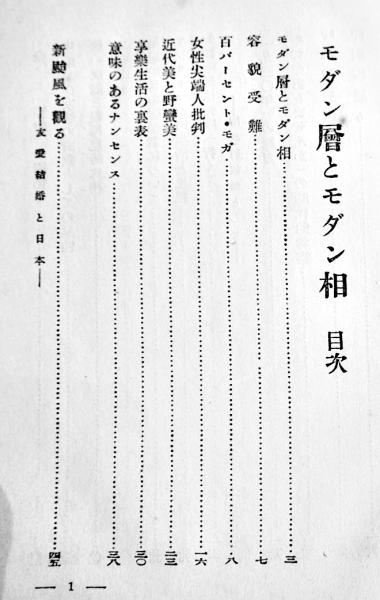 モダン層とモダン相 目次
モダン層とモダン相……三
容貌受難……七
百パーセント・モガ……八
女性尖端人批判……一六
近代美と野蠻美……二三
享樂生活の裏表……三〇
意味のあるナンセンス……三八
新颱風を觀る……四五
——友愛結婚と日本——
— 1 —